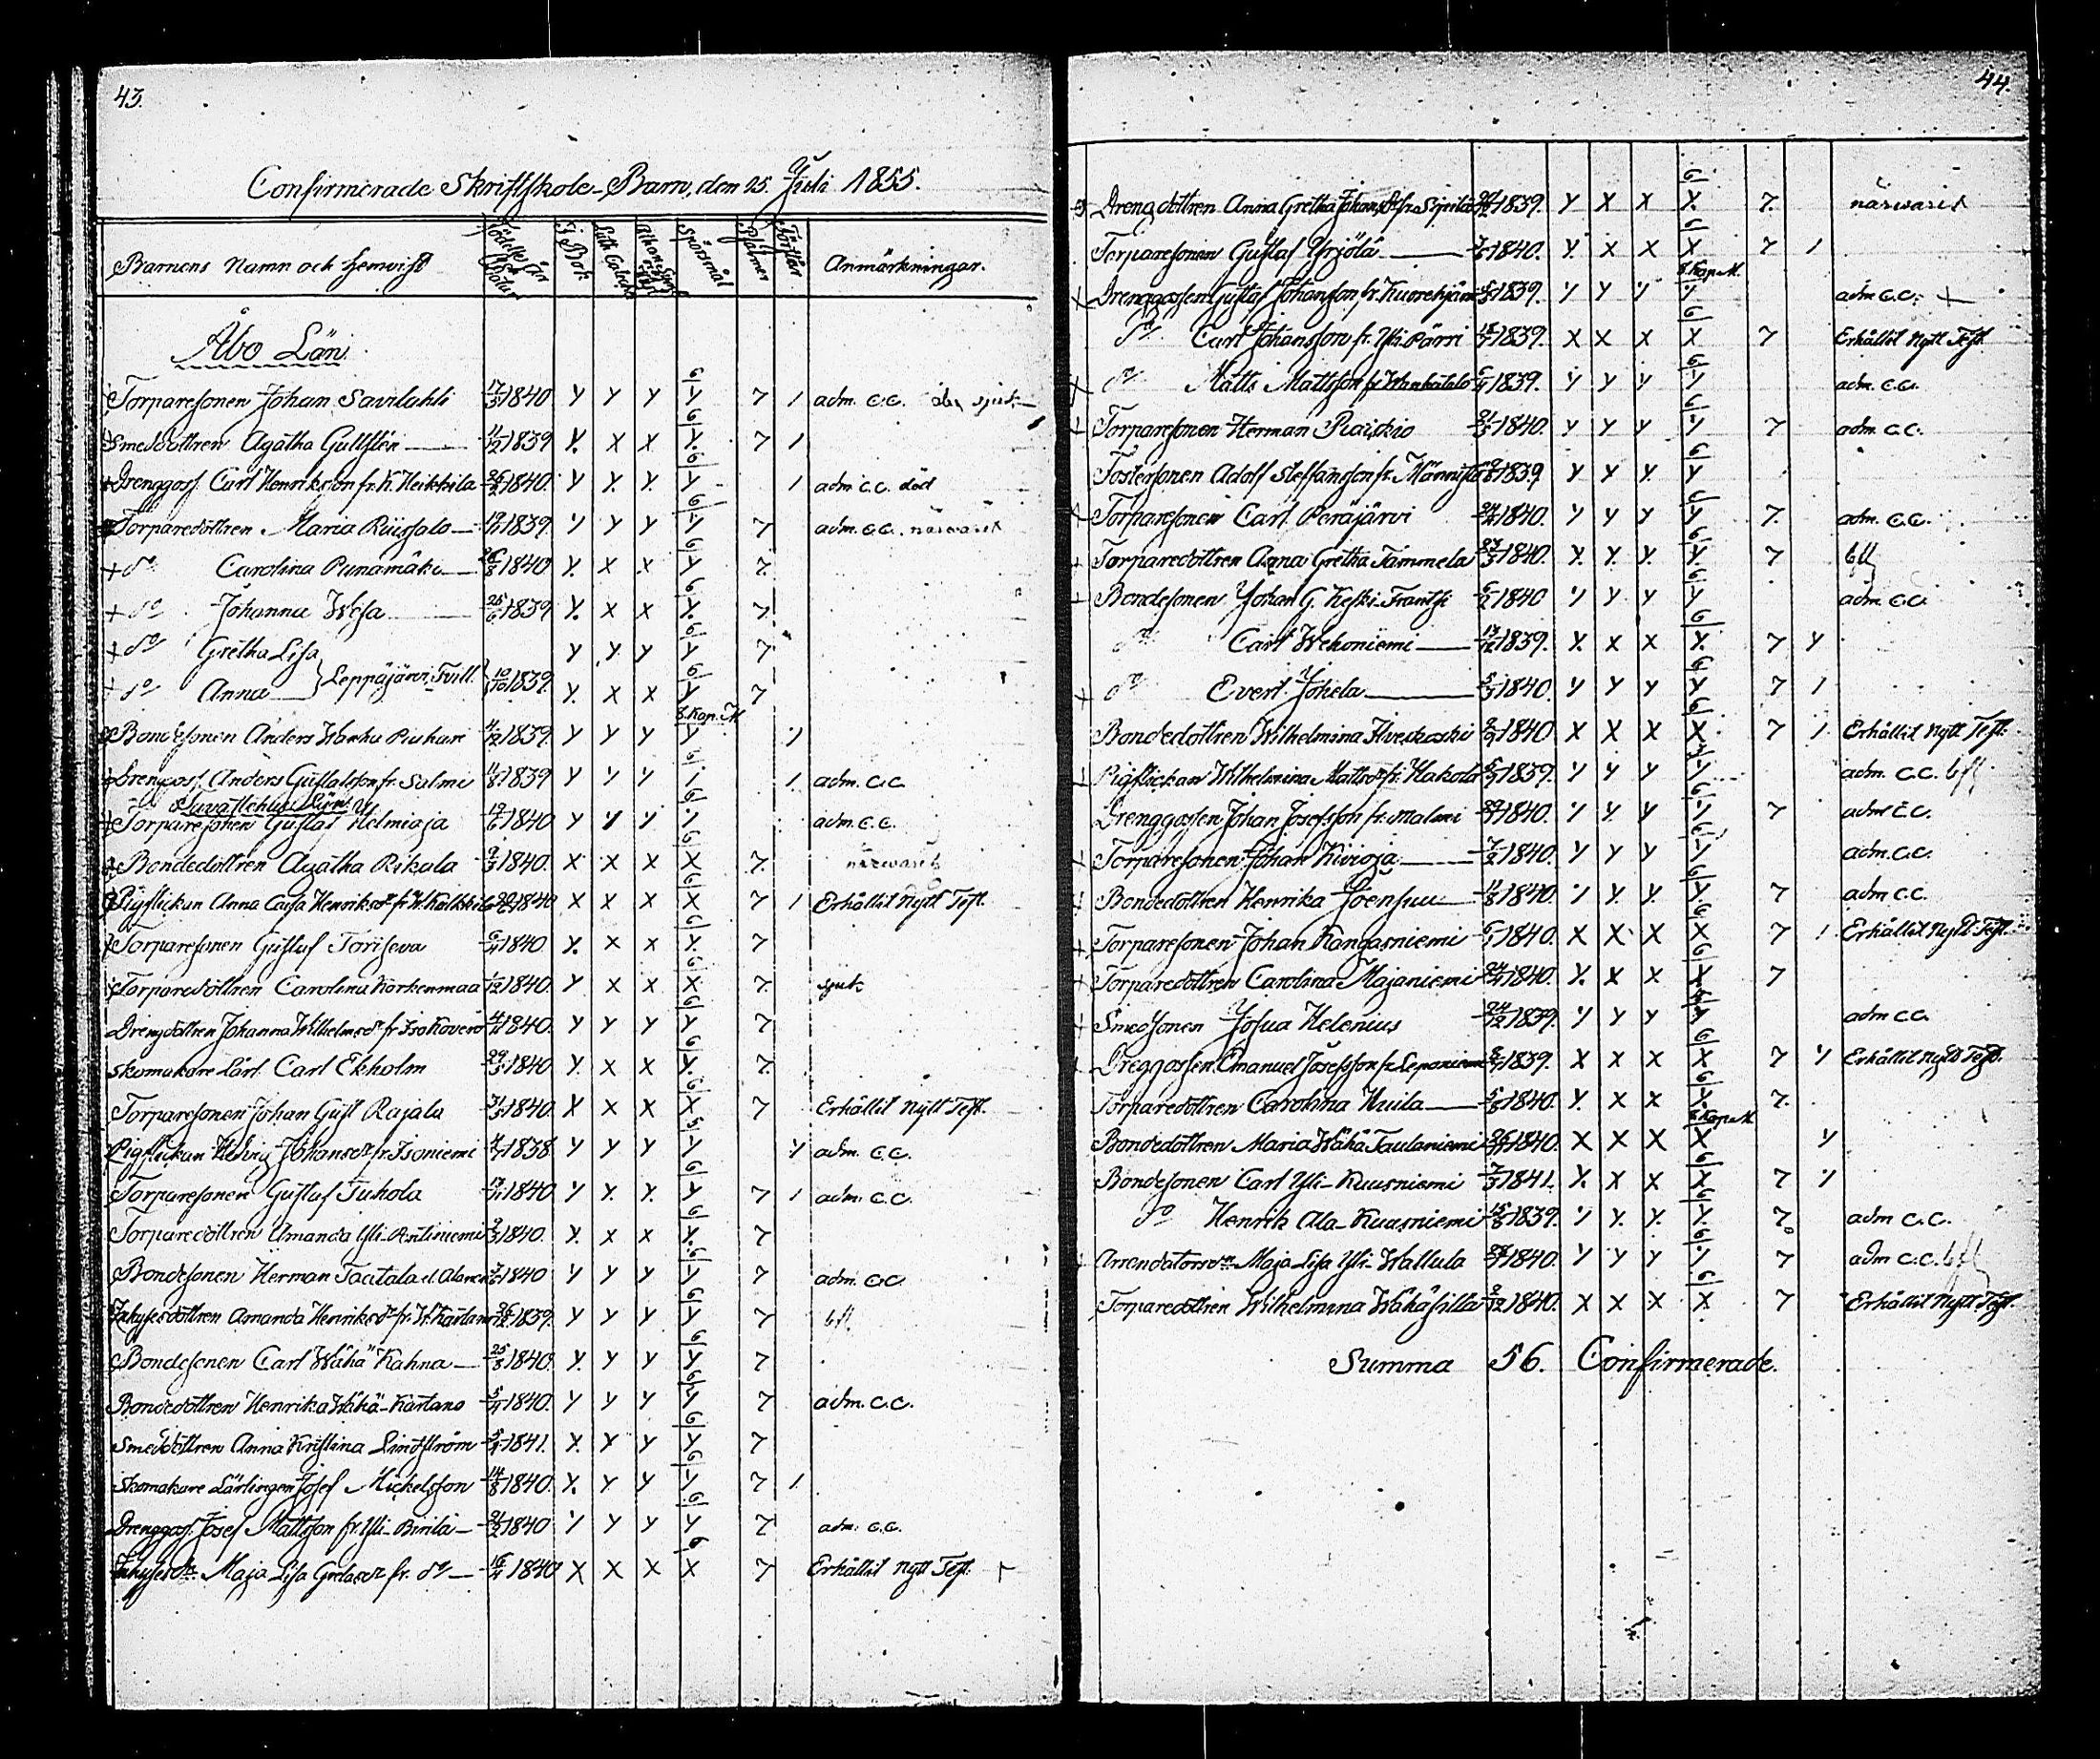 43.
Confirmerade Skriftskole-Barn, den 25. Juli 1855.
Barnens Namn och Hemvist Födelse År och Datum I Bok Luth. Cateches Spörsmål Psalmer Förstår Anmärkningar.
Åbo Län.
Torparesonen Johan Saviluhti 17/3 1840 Y Y Y 6/Y 7 1 adm. C.C. sjuk
Smeddottren Agatha Gullstén 11/12 1839 Y. X X 6/Y. 7 1
Drenggoss. Carl Henriksson fr. K. Heikkila 26/2 1840. Y Y. Y. 6/Y 1 adm C.C. död
Torparedottren Maria Riissalo 1839. Y Y Y 6/Y 7 adm. C.C. närvarit
+ do Carolina Punamäki 26/8 1840 Y. X X 6/Y 7.
+ do Johanna Wesa 25/6 1839 Y. X X 6/Y. 7
+ do Gretha Lisa Y Y. Y 6/Y 7
+ do Anna } Leppäjärvi, Tvill. 10/10 1839. Y. X X 6/Y 7
Bondesonen Anders Wanha Piuhari 4/12 1839. Y Y Y 8. Kap. M. Y Y
Drenggoss. Anders Gustafsson fr. Salmi 11/8 1839 Y Y Y 6/Y 1 adm. C.C
Tavastehus Län
Torparesonen Gustaf Helmioja 19/6 1840 Y Y Y 6/Y adm. C.C.
Bondedottren Agatha Rikala 9/3 1840. X X X 6/X 7. närvarit
Pigflickan Anna Caisa Henriksdr fr. W. Kölkkilä 1840 X X X 6/X 7 1 Erhållit Nytt Test.
Torparesonen Gustaf Toriseva 6/4 1840 Y. X X 6/Y. 7
Torparedottren Carolina Korkenmaa 1/12 1840. Y X X 6/X 7. sjuk
Drengdottren Johanna Wilhelmsdr fr. Iso Kovero 1840. Y Y Y 6/Y 7
Skomakare Lärl. Carl Ekholm 29/3 1840 Y. X X 6/Y. 7
Torparesonen Johan Gust. Rajala 31/3 1840. X X X 6/X 7 Erhållit Nytt Test.
Pigflickan Hedvig Johansdr fr. Isoniemi 1838. Y Y Y 5/Y Y adm. C.C.
Torparesonen Gustaf Tuhola 17/1 1840 Y Y. Y. 6/Y 7 1 adm. C.C.
Torparedottren Amanda Yli-Antiniemi 2/3 1840. Y. X X 6/Y. 7
Bondesonen Herman Taatala 1840 Y Y Y 6/Y 7 adm. C.C.
Inhysesdottren Amanda Henriksdr fr. W. Kärtano 26/12 1839. Y Y Y 6/Y 7 bst
Bondesonen Carl Wähä Kahna 25/8 1840. Y. Y Y 6/Y 7
Bondedottren Henrika Wähä-Kartano 5/4 1840. Y Y Y 6/Y 7 adm. C.C.
Smeddottren Anna Kristina Lindström 1841. Y. Y Y 6/Y 7
Skomakare Lärlingen Josef Mickelsson 14/8 1840. Y. Y Y 6/Y 7 1.
Drenggoss. Josef Mattsson fr. Yli-Birilä 21/2 1840 Y Y Y 6/Y 7 adm. C.C.
Maja Lisa fr. do 16/4 1840 X X X 6/X 7 Erhållit Nytt Test.
44.
Drengdottren Anna Gretha Johansdr fr. Sipilä 1839. Y X X 6/X. 7. närvarit
Torparesonen Gustaf Yrjölä 1840. Y. X X 6/X 7 1
+ Drenggossen Gustaf Johansson fr. 1839. Y Y Y 8. Kap. M. Y adm C.C. +
do Carl Johansson fr. Yli-Pärri 1839. X X X 6/X 7 Erhållit Nytt Test.
+ do Matts Mattsson fr. 1839. Y Y Y 6/Y adm. C.C.
+ Torparesonen Herman Raiskio 21/5 1840. Y Y Y 6/Y 7 adm. C.C.
Fostersonen Adolf Steffansson fr. Männistö 1839 Y Y Y. 6/Y
+ Torparesonen Carl Peräjärvi 1840. Y Y Y 6/Y 7. adm. C.C.
+ Torparedottren Anna Gretha Tammela 27/3 1840. Y. Y. Y. 6/Y. 7 bst
+ Bondesonen Johan G. Keski-Frantsi 6/2 1840 Y Y Y 6/Y adm. C.C.
do Carl Wehoniemi 13/12 1839. Y. X X 6/Y. 7 Y
+ do Evert Jokela 1840. Y Y Y 6/Y 7 1
Bondedottren Wilhelmina Ilveskoski 1840 X X X 6/X 7 1 Erhållit Nytt Test.
+ Pigflickan Wilhelmina Mattsdr fr. Hakola 1839. Y Y Y adm. C.C. bst
Drenggossen Johan Josefsson fr. Malmi 1840. Y Y. Y 6/Y 7 adm C.C.
+ Torparesonen Johan Kivioja 7/2 1840. Y Y Y 6/Y adm. C.C.
+ Bondedottren Henrika Joensuu 11/8 1840. Y Y. Y. 6/Y. 7 adm C.C.
+ Torparesonen Johan Kangasniemi 6/1 1840. X X X 6/X 7 1 Erhållit Nytt Test.
+ Torparedottren Carolina Majaniemi 1840. Y. X X 6/Y 7
+ Smedsonen Josua Helenius 24/12 1839. Y Y Y Y adm C.C.
+ Drenggossen Emanuel Josefsson fr. Leponiemi 1839. X X X 6/X 7 Y Erhållit Nytt Test.
Torparedottren Carolina Huila 1840. Y. X X 6/Y. 7.
Bondedottren Maria Wähä Taulaniemi 1840. X X X 8. Kap. M. X Y
Bondesonen Carl Yli-Kuusniemi 7/3 1841. Y. X X 6/X 7 Y
do Henrik Ala-Kuusniemi 15/8 1839. Y Y. Y. 6/Y. 7. adm C.C.
+ Arrendatorsdn Maja Lisa Yli-Wallula 1840. Y Y Y 6/Y 7 adm C.C. bst
Torparedottren Wilhelmina Wähäsilla 2/12 1840. X X X 6/X 7 Erhållit Nytt Test.
Summa 56. Confirmerade.